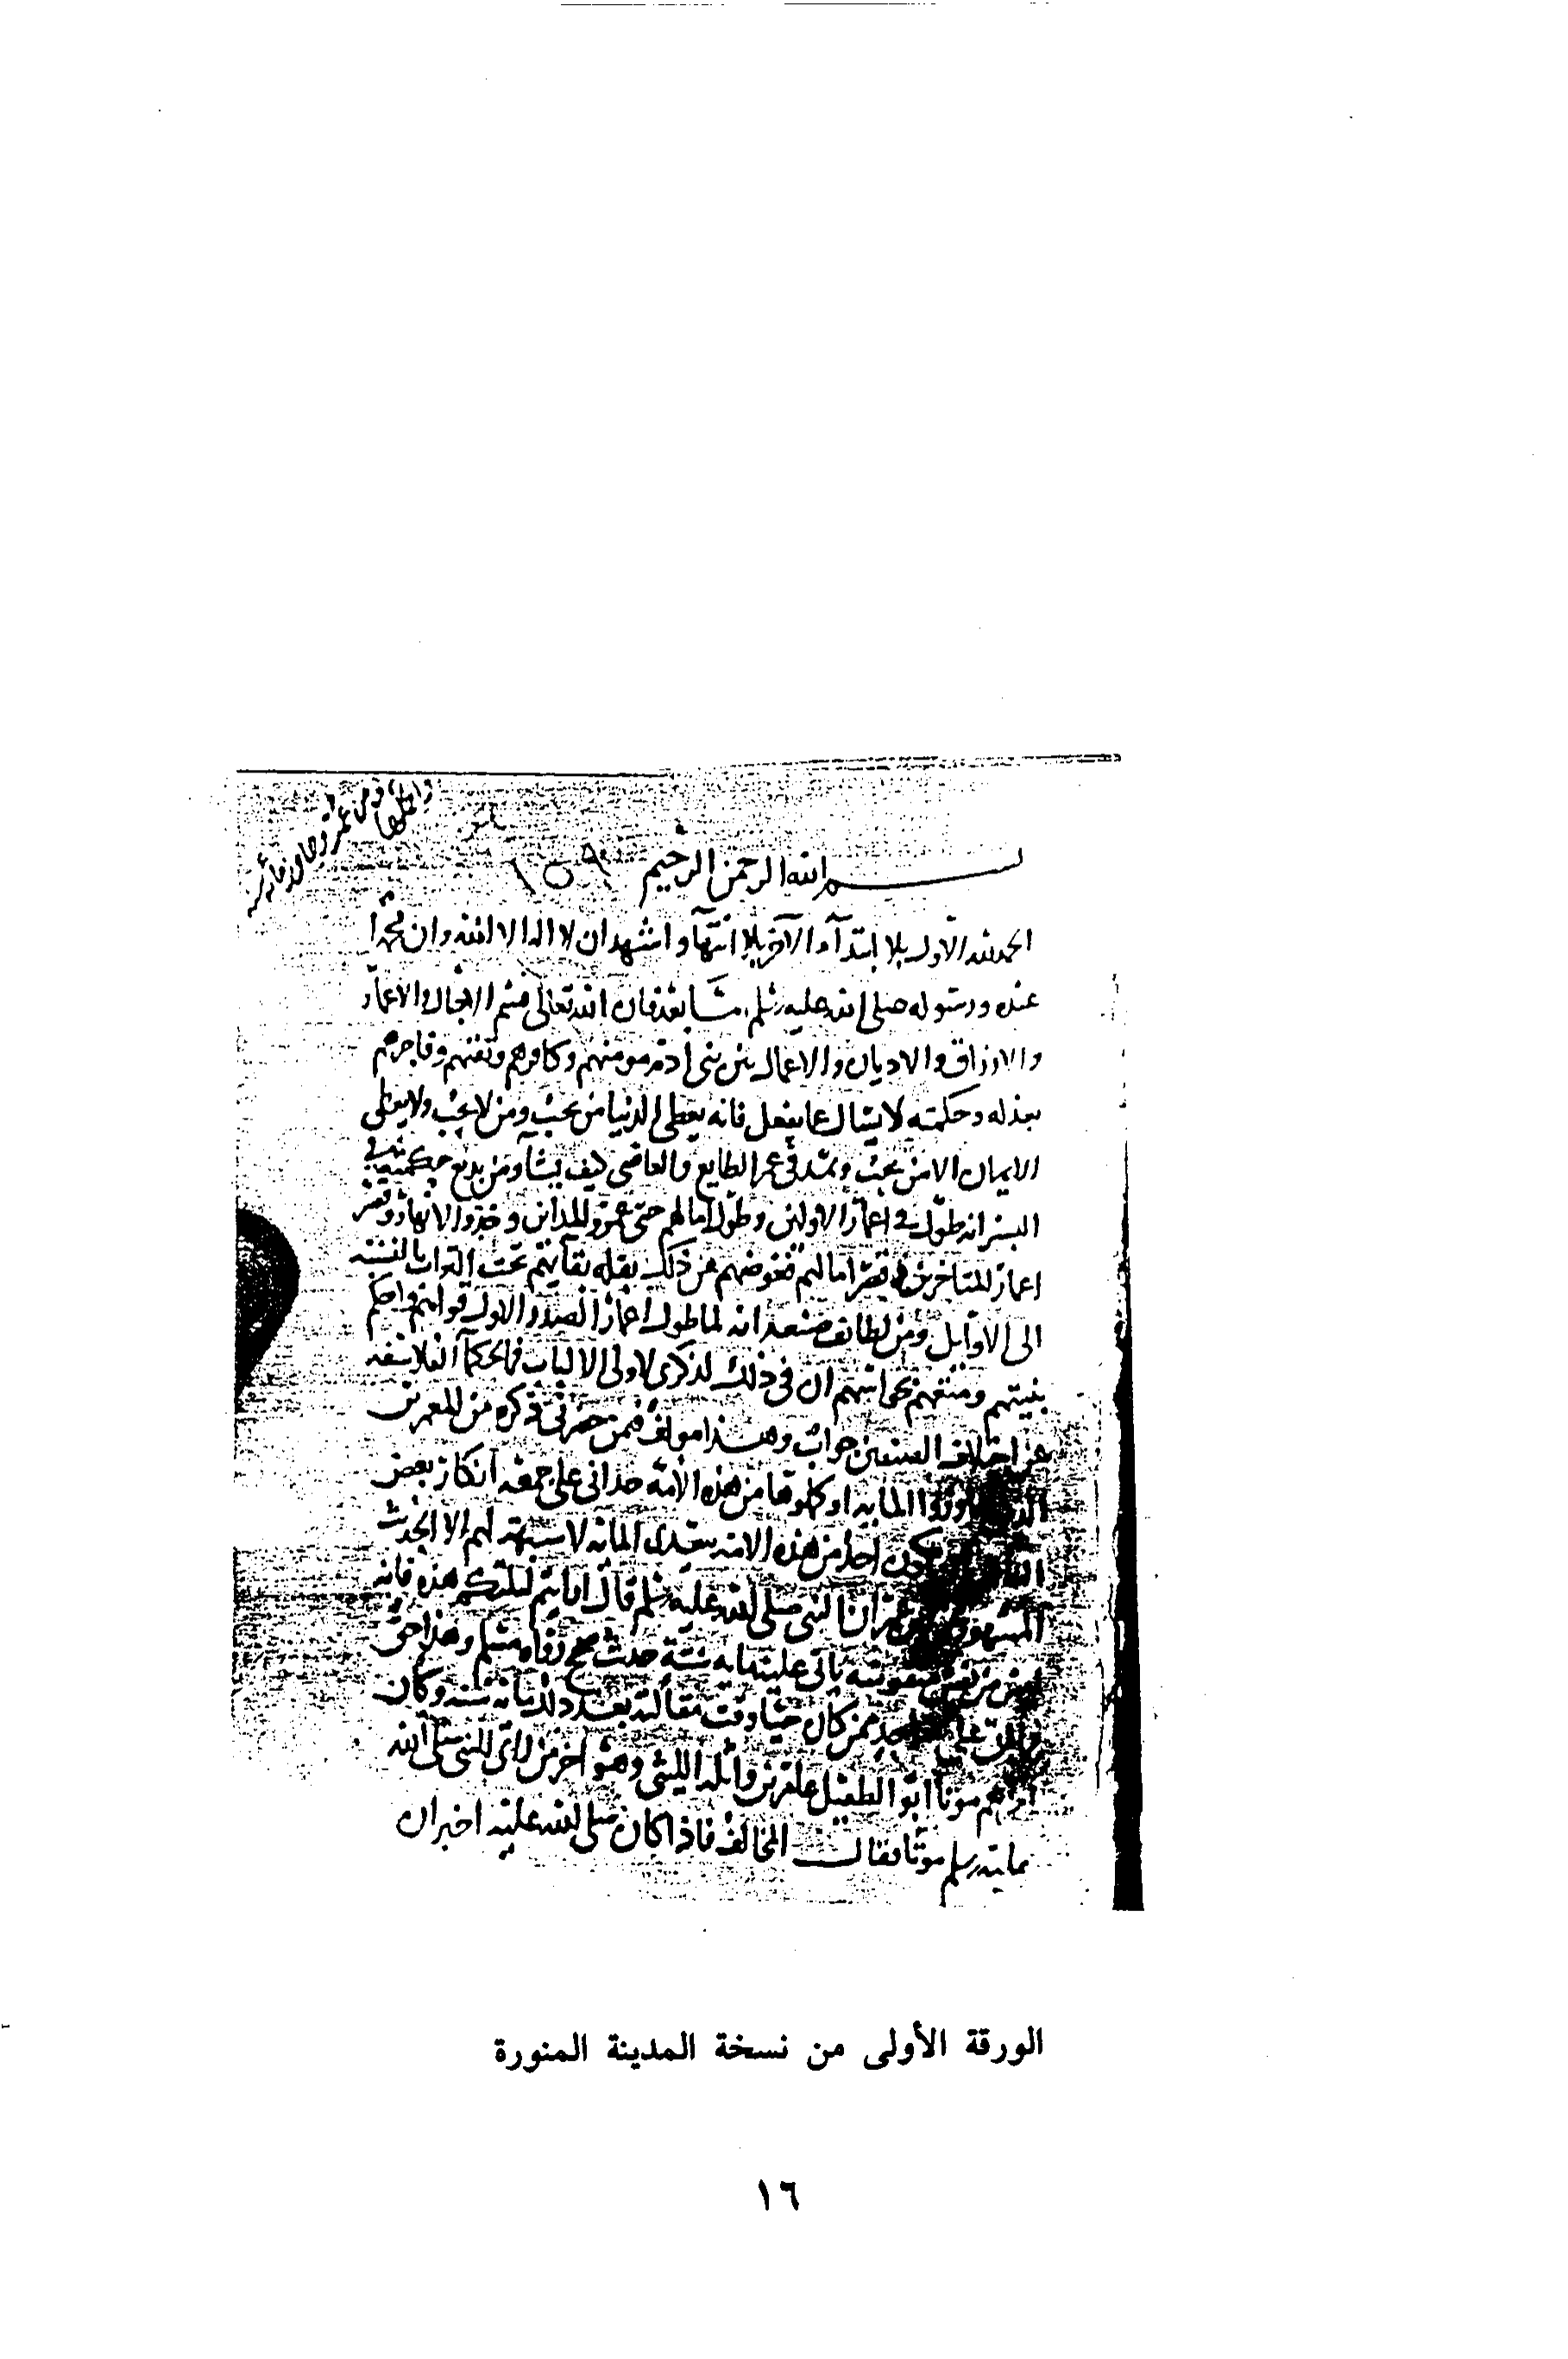 بسم الله الرحمن الرحيم
الحمد لله الأول بلا ابتدآء الآخر بلا انتهآء واشهد ان لا اله الا الله وان محمدا
عبده ورسوله صلى الله عليه وسلم بعد فان الله تعالى قسم الاجال والاعمار
والارزاق والاديان والاعمال بين بنى ادم مومنهم وكافرهم وتقيهم وفاجرهم
بعدله وحكمته لا يسال عما يفعل فانه يعطى الدنيا من يحب ومن لا يحب ولا يعطى
الايمان الا من يحب ويمد فى عمر الطايع والعاصى كيف يشآ ومن بديع حكمته فى
البشر انه طول فى اعمار الاولين وطول امالهم حتى عمروا المداين وخدوا الانهار وقصر
اعمار المتاخرين وقصر امالهم فعوضهم عن ذلك بقلة بقايهم تحت التراب بالنسبة
الى الاوايل ومن لطايف صنعه انه لما طول اعمار الصدر الاول قواهم واحكم
بنيتهم ومتعهم بحواسهم ان فى ذلك لذكرى لاولى الالباب فما لحكمآ الفلاسفه
عن اختلاف الصنفين جواب وهذا مولف فيمن حضرنى ذكره من المعمرين
جاوزوا المايه او كملوها من هذه الامة حدانى على جمعه انكار بعض
يكون احد من هذه الامه يتعدى المايه لا شبهة لهم الا الحديث
ان النبى صلى الله عليه وسلم قال ارايتم ليلتكم هذه فانه
من نفس منفوسه ياتى عليها مايه سنة حديث صحيح رواه مسلم وهذا حق
ممن كان حيا وقت مقالته بعد ذلك مائة سنه وكان
اخرهم موتا ابو الطفيل عامر بن واثلة الليثى وهو اخر من راى النبى صلى الله
عليه وسلم موتا فقال المخالف فاذا كان صلى الله عليه اخبر ان
الورقة الأولى من نسخة المدينة المنورة
١٦